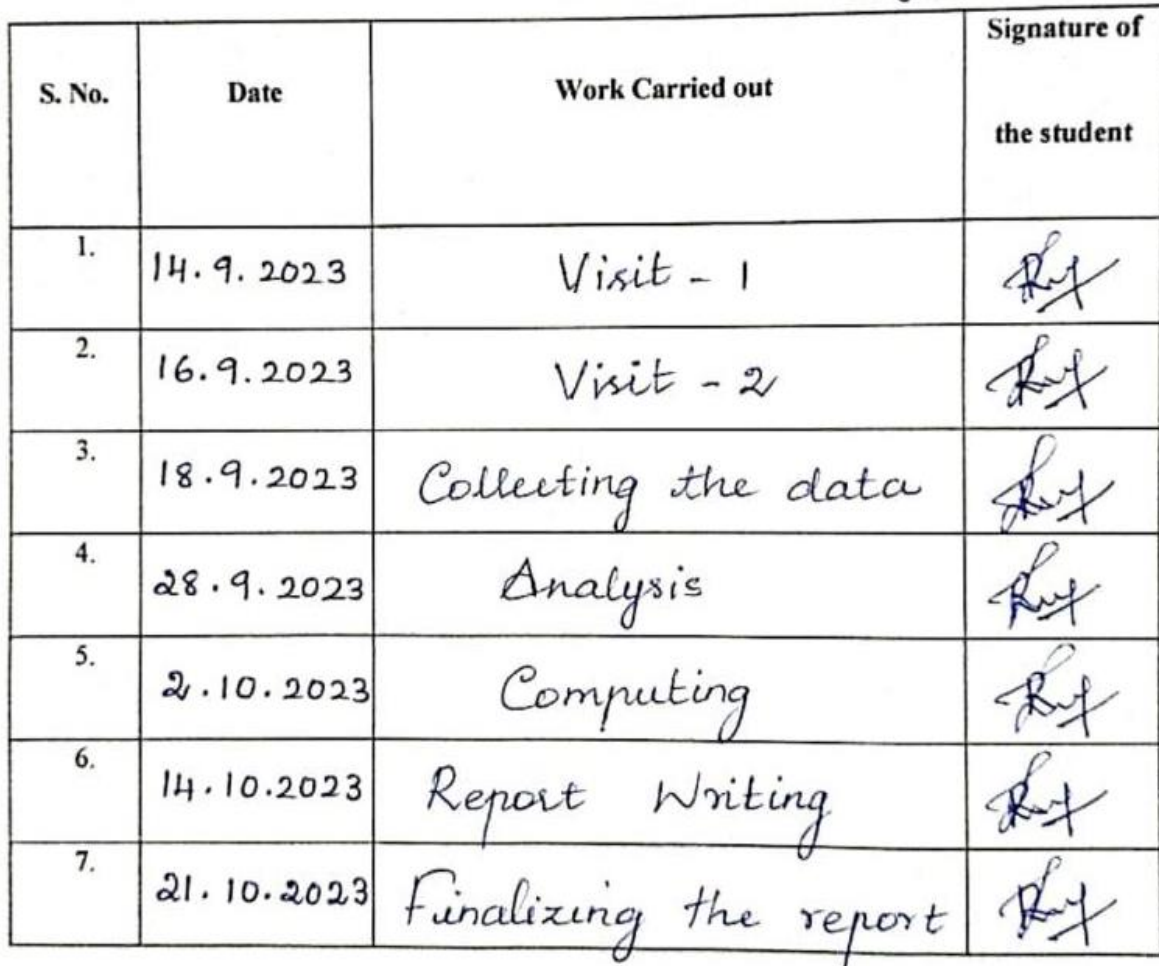 S. No. Date Work Carried out Signature of the student
1. 14.9.2023 Visit - 1
2. 16.9.2023 Visit - 2
3. 18.9.2023 Collecting the data
4. 28.9.2023 Analysis
5. 2.10.2023 Computing
6. 14.10.2023 Report Writing
7. 21.10.2023 Finalizing the report